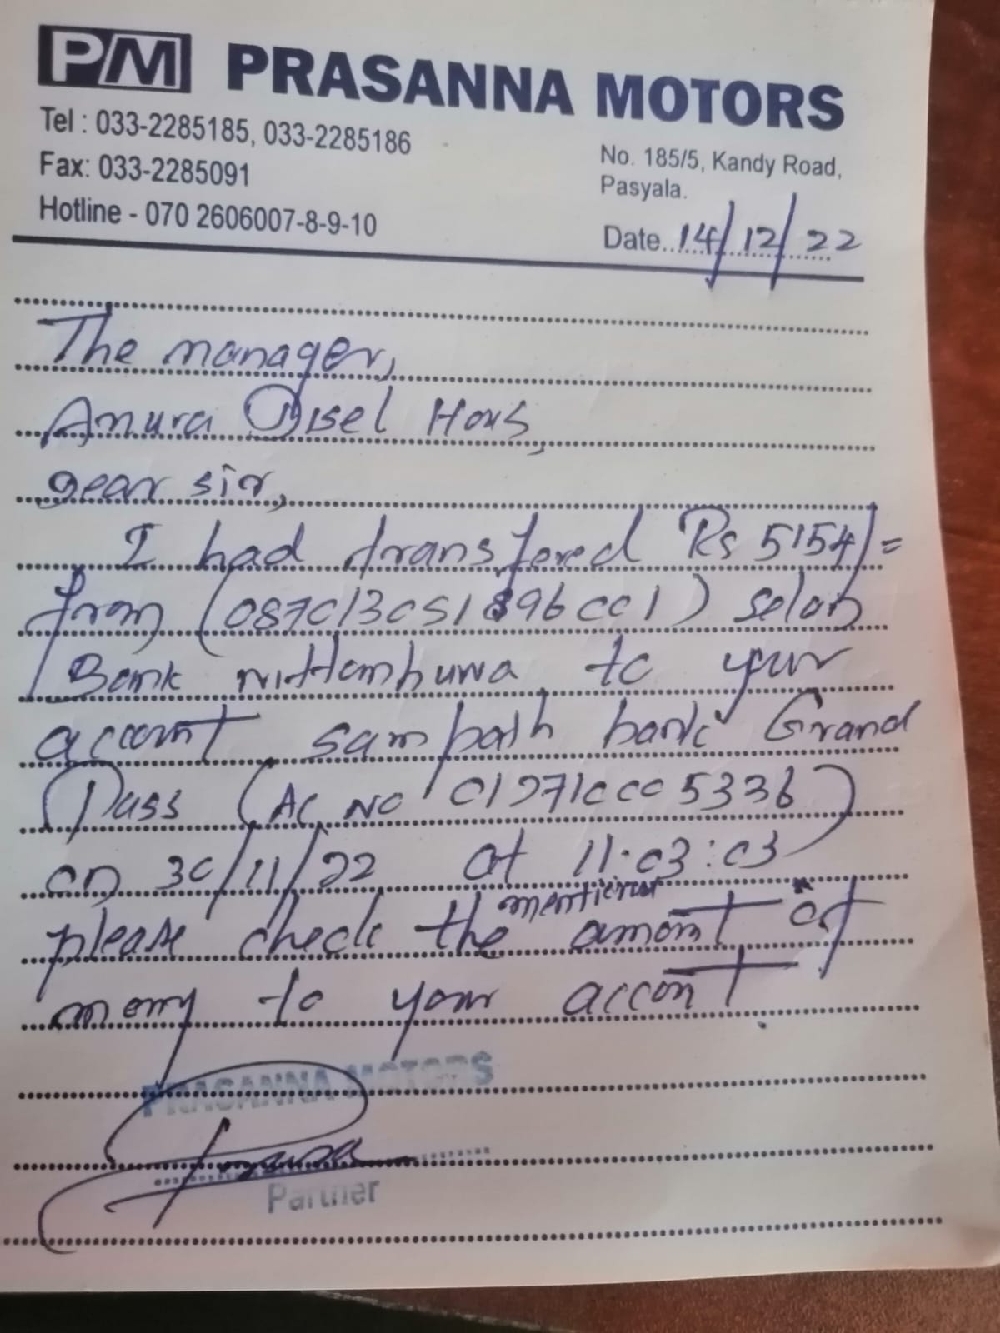 PM PRASANNA MOTORS
Tel : 033-2285185, 033-2285186
Fax: 033-2285091
Hotline - 070 2606007-8-9-10
No. 185/5, Kandy Road,
Pasyala.
Date..14/12/22
The manager,
Anura Disel Hous,
Dear sir,
I had transfered Rs 5154/=
from (087013051896001) selan
Bank nittambuwa to your
accont sampath bank Grand
Pass (AC NO 019710005336)
on 30/11/22 at 11.03:03
please check the mentiond amont of
mony to your accont.
PRASANNA MOTORS
Partner